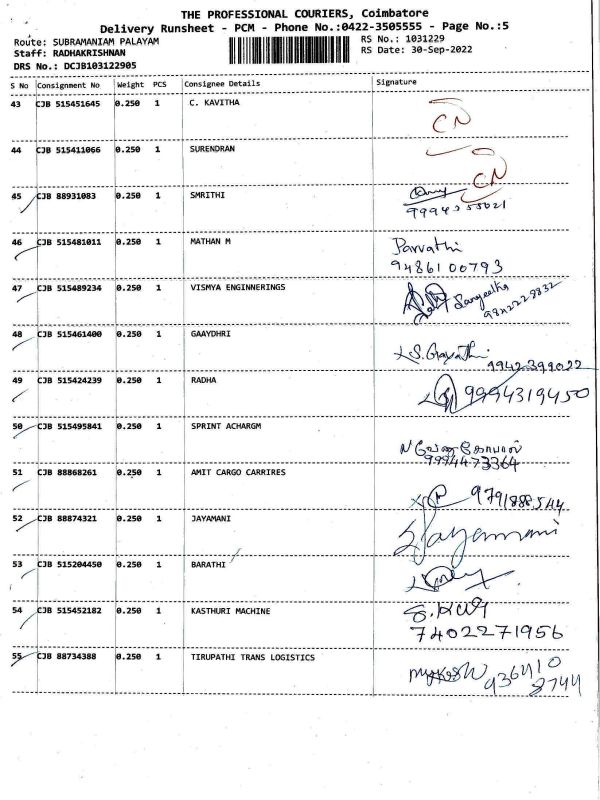 THE PROFESSIONAL COURIERS, Coimbatore
Delivery Runsheet - PCM - Phone No.:0422-3505555 - Page No.:5
Route: SUBRAMANIAM PALAYAM RS No.: 1031229
Staff: RADHAKRISHNAN RS Date: 30-Sep-2022
DRS No.: DCJB103122905
S No Consignment No Weight PCS Consignee Details Signature
43 CJB 515451645 0.250 1 C. KAVITHA
CN
44 CJB 515411066 0.250 1 SURENDRAN
CN
45 CJB 88931083 0.250 1 SMRITHI
46 CJB 515481011 0.250 1 MATHAN M Parvathi
9486100793
47 CJB 515489234 0.250 1 VISMYA ENGINNERINGS Sangeetha
48 CJB 515461400 0.250 1 GAAYDHRI
S. Gayathri
9942399022
49 CJB 515424239 0.250 1 RADHA
9994319450
50 CJB 515495841 0.250 1 SPRINT ACHARGM
N வேணுகோபால்
9994473364
51 CJB 88868261 0.250 1 AMIT CARGO CARRIRES
9791888544
52 CJB 88874321 0.250 1 JAYAMANI
Jayamani
53 CJB 515204450 0.250 1 BARATHI
54 CJB 515452182 0.250 1 KASTHURI MACHINE
7402271956
55 CJB 88734388 0.250 1 TIRUPATHI TRANS LOGISTICS
936410
8744